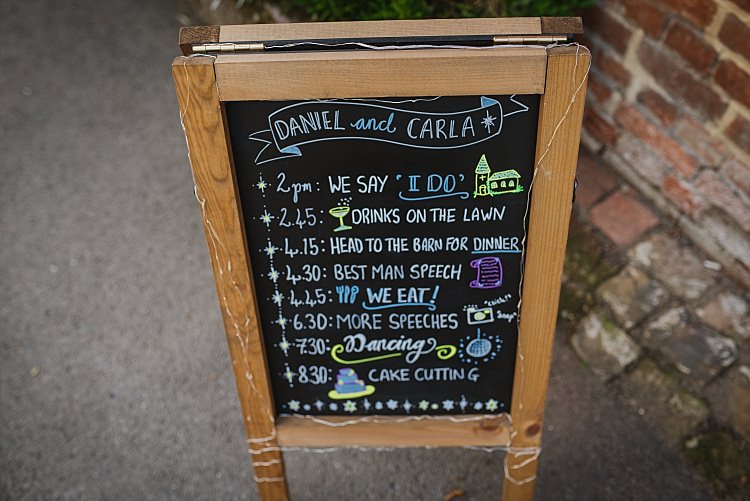 DANIEL and CARLA
2pm: WE SAY 'I DO'
2.45: DRINKS ON THE LAWN
4.15: HEAD TO THE BARN FOR DINNER
4.30: BEST MAN SPEECH
4.45: WE EAT!
6.30: MORE SPEECHES
"Click!"
Snap"
7.30: Dancing
8.30: CAKE CUTTING